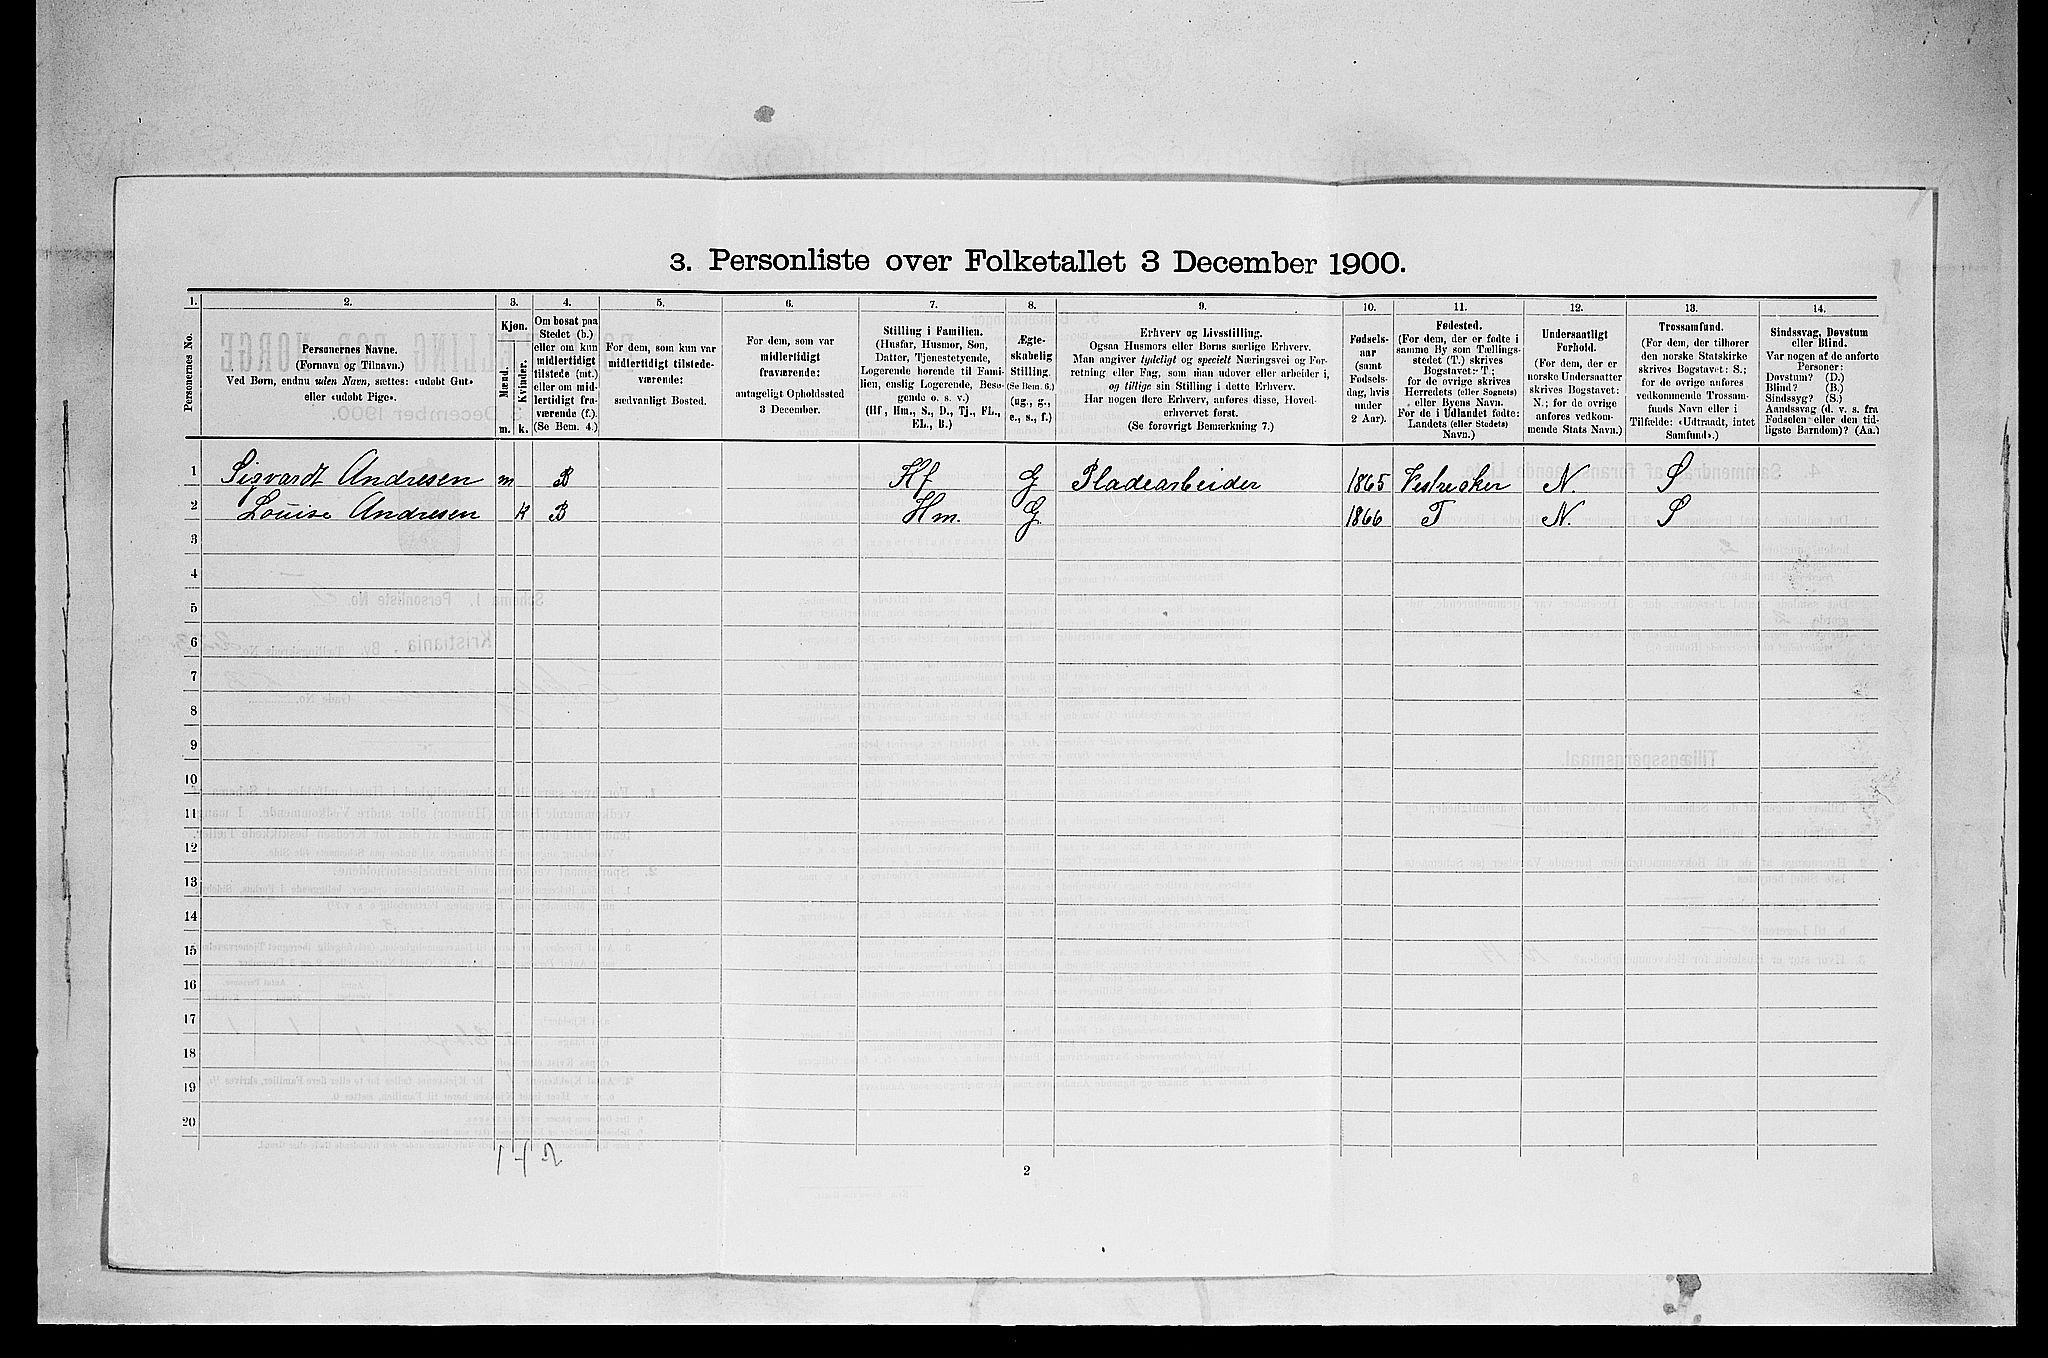 3. Personliste over Folketallet 3 December 1900.
1. 2. 3. 4. 5. 6. 7. 8. 9. 10. 11. 12. 13. 14.
Personernes No.
Personernes Navne.
(Fornavn og Tilnavn.)
Ved Børn, endnu uden Navn, sættes: «udøbt Gut»
eller «udøbt Pige».
Kjøn.
Mænd.
Kvinder.
m. k.
Om bosat paa
Stedet (b.)
eller om kun
midlertidigt
tilstede (mt.)
eller om mid-
lertidigt fra-
værende (f.).
(Se Bem. 4.)
For dem, som kun var
midlertidigt tilstede-
værende:
sædvanligt Bosted.
For dem, som var
midlertidigt
fraværende:
antageligt Opholdssted
3 December.
Stilling i Familien.
(Husfar, Husmor, Søn,
Datter, Tjenestetyende,
Logerende hørende til Fami-
lien, enslig Logerende, Besø-
gende o. s. v.)
(Hf., Hm., S., D., Tj., FL.,
EL., B.)
Ægte-
skabelig
Stilling.
(Se Bem. 6.)
(ug., g.,
e., s., f.)
Erhverv og Livsstilling.
Ogsaa Husmors eller Børns særlige Erhverv.
Man angiver tydeligt og specielt Næringsvei og For-
retning eller Fag, som man udøver eller arbeider i,
og tillige sin Stilling i dette Erhverv.
Har nogen flere Erhverv, anføres disse, Hoved-
erhvervet først.
(Se forøvrigt Bemærkning 7.)
Fødsels-
aar
(samt
Fødsels-
dag, hvis
under
2 Aar).
Fødested.
(For dem, der er fødte i
samme By som Tællings-
stedet (T.) skrives
Bogstavet: T;
for de øvrige skrives
Herredets (eller Sognets)
eller Byens Navn.
For de i Udlandet fødte:
Landets (eller Stedets)
Navn.)
Undersaatligt
Forhold.
(For dem, der er
norske Undersaatter
skrives Bogstavet:
N.; for de øvrige
anføres vedkom-
mende Stats Navn.)
Trossamfund.
(For dem, der tilhører
den norske Statskirke
skrives Bogstavet: S.;
for de øvrige anføres
vedkommende Trossam-
funds Navn eller i
Tilfælde: «Udtraadt, intet
Samfund».)
Sindssvag, Døvstum
eller Blind.
Var nogen af de anførte
Personer:
Døvstum? (D.)
Blind? (B.)
Sindssyg? (S.)
Aandssvag (d. v. s. fra
Fødselen eller den tid-
ligste Barndom)? (Aa.)
1 Sigvardt Andresen m B Hf G Pladearbeider 1865 Vestre Aker N. S
2 Louise Andresen k B Hm. G. 1866 T N. S
3
4
5
6
7
8
9
10
11
12
13
14
15
16
17
18
19
20
2